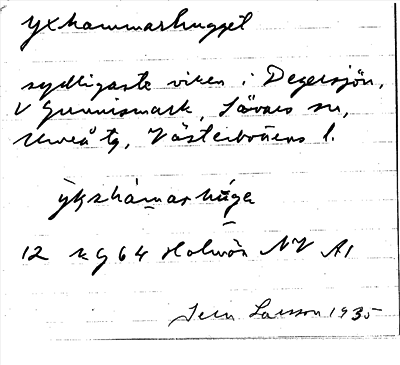 Yxhammarhugget
sydligaste viken i Degersjön,
V Gunnismark, Sävars sn,
Umeå tg, Västerbottens l.
ykshamarhúga
12 2164 Holmön NV A1
Larsson 1935